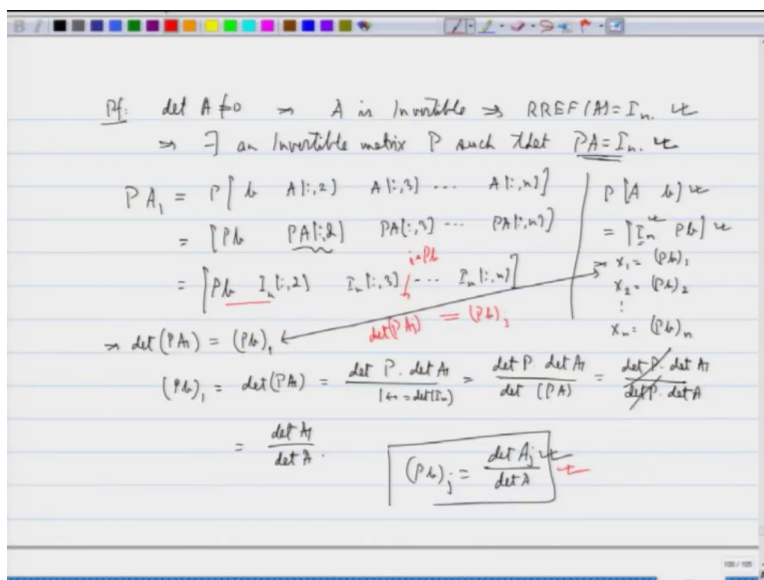 Pf: det A ≠ 0 ⇒ A is Invertible ⇒ RREF(A) = Iₙ.
⇒ ∃ an Invertible matrix P such that PA = Iₙ.
PA₁ = P[b A(:,2) A(:,3) ... A(:,n)]
= [Pb PA(:,2) PA(:,3) ... PA(:,n)]
= [Pb Iₙ(:,2) Iₙ(:,3) ... Iₙ(:,n)]
P[A b]
= [Iₙ Pb]
⇒ x₁ = (Pb)₁
x₂ = (Pb)₂
⋮
xₙ = (Pb)ₙ
det(PAⱼ) = (Pb)ⱼ
⇒ det(PA₁) = (Pb)₁
(Pb)₁ = det(PA₁) = det P. det A₁ / 1 ← = det(Iₙ) = det P. det A₁ / det (PA) = det P. det A₁ / det P. det A
= det A₁ / det A.
(Pb)ⱼ = det Aⱼ / det A
100 / 105